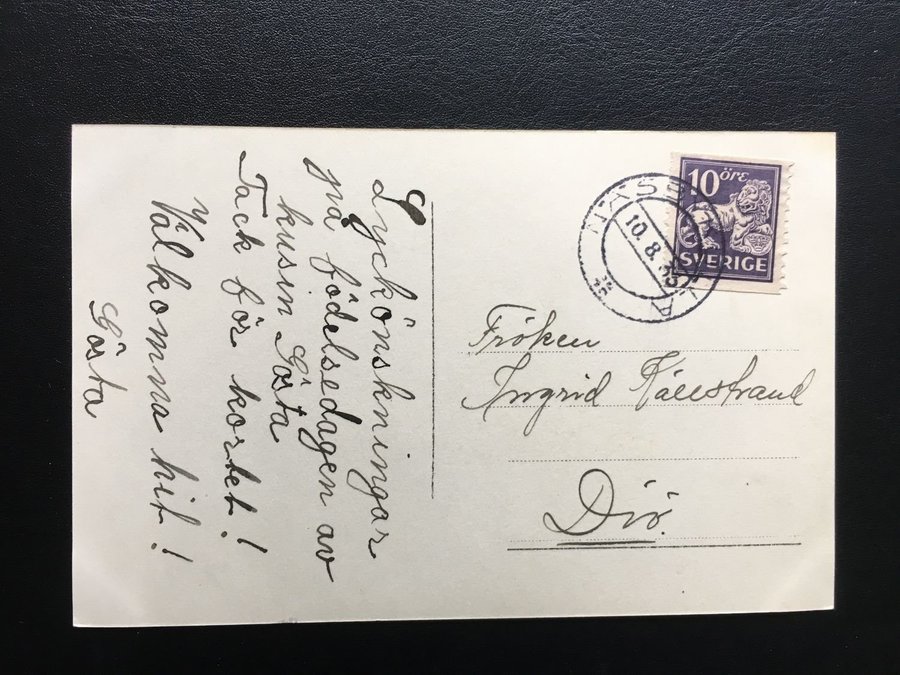 Lyckönskningar
på födelsedagen av
kusin Gösta
Tack för kortet!
Välkomna hit!
Gösta
10 öre
SVERIGE
10.8.
Fröken
Ingrid Källstrand
Diö.